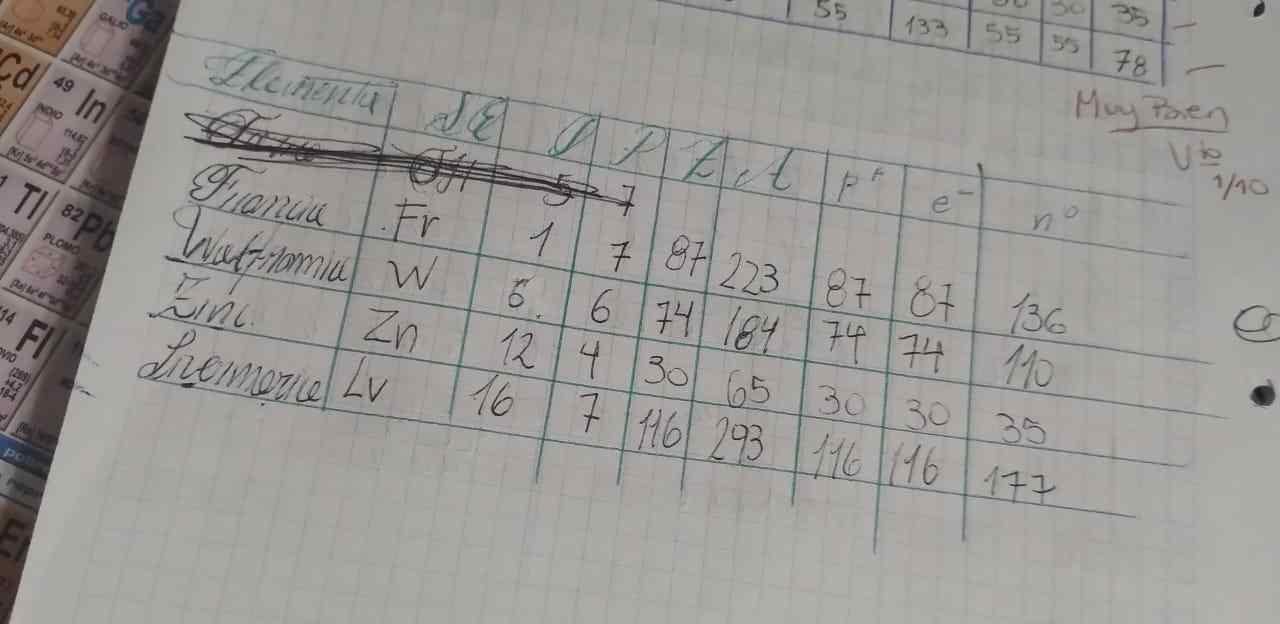 55
30 30 35
133 55 55 78
Muy Bien
Vto
1/10
Elemento SE G P Z A p+ e- n°
5 7
Francio Fr 1 7 87 223 87 87 136
Wolframio W 6. 6 74 184 74 74 110
Zinc. Zn 12 4 30 65 30 30 35
Livermorio Lv 16 7 116 293 116 116 177
Ga
GALIO
Cd
49
In
INDIO
Tl
82
Pb
PLOMO
Fl